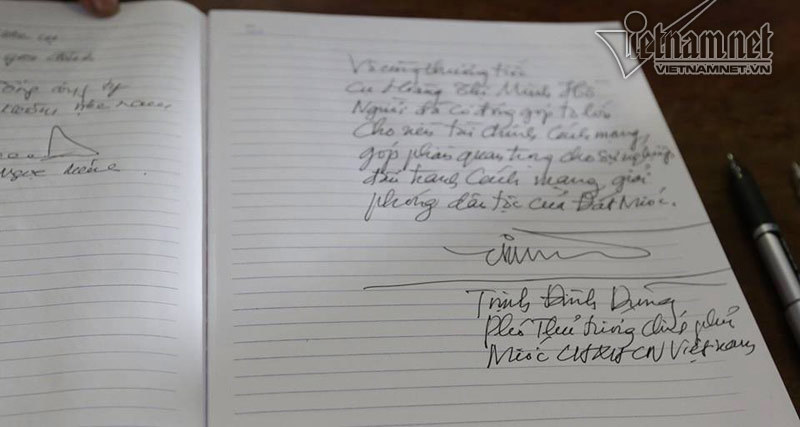 Vietnam.net
VIETNAMNET.VN
Vô cùng thương tiếc
Cụ Hoàng Thị Minh Hồ
Người đã có đóng góp to lớn
Cho nền tài chính Cách mạng,
góp phần quan trọng cho sự nghiệp
đấu tranh Cách mạng giải
phóng dân tộc của Đất Nước.
Trịnh Đình Dũng
Phó Thủ tướng Chính phủ
Nước CHXHCN Việt Nam